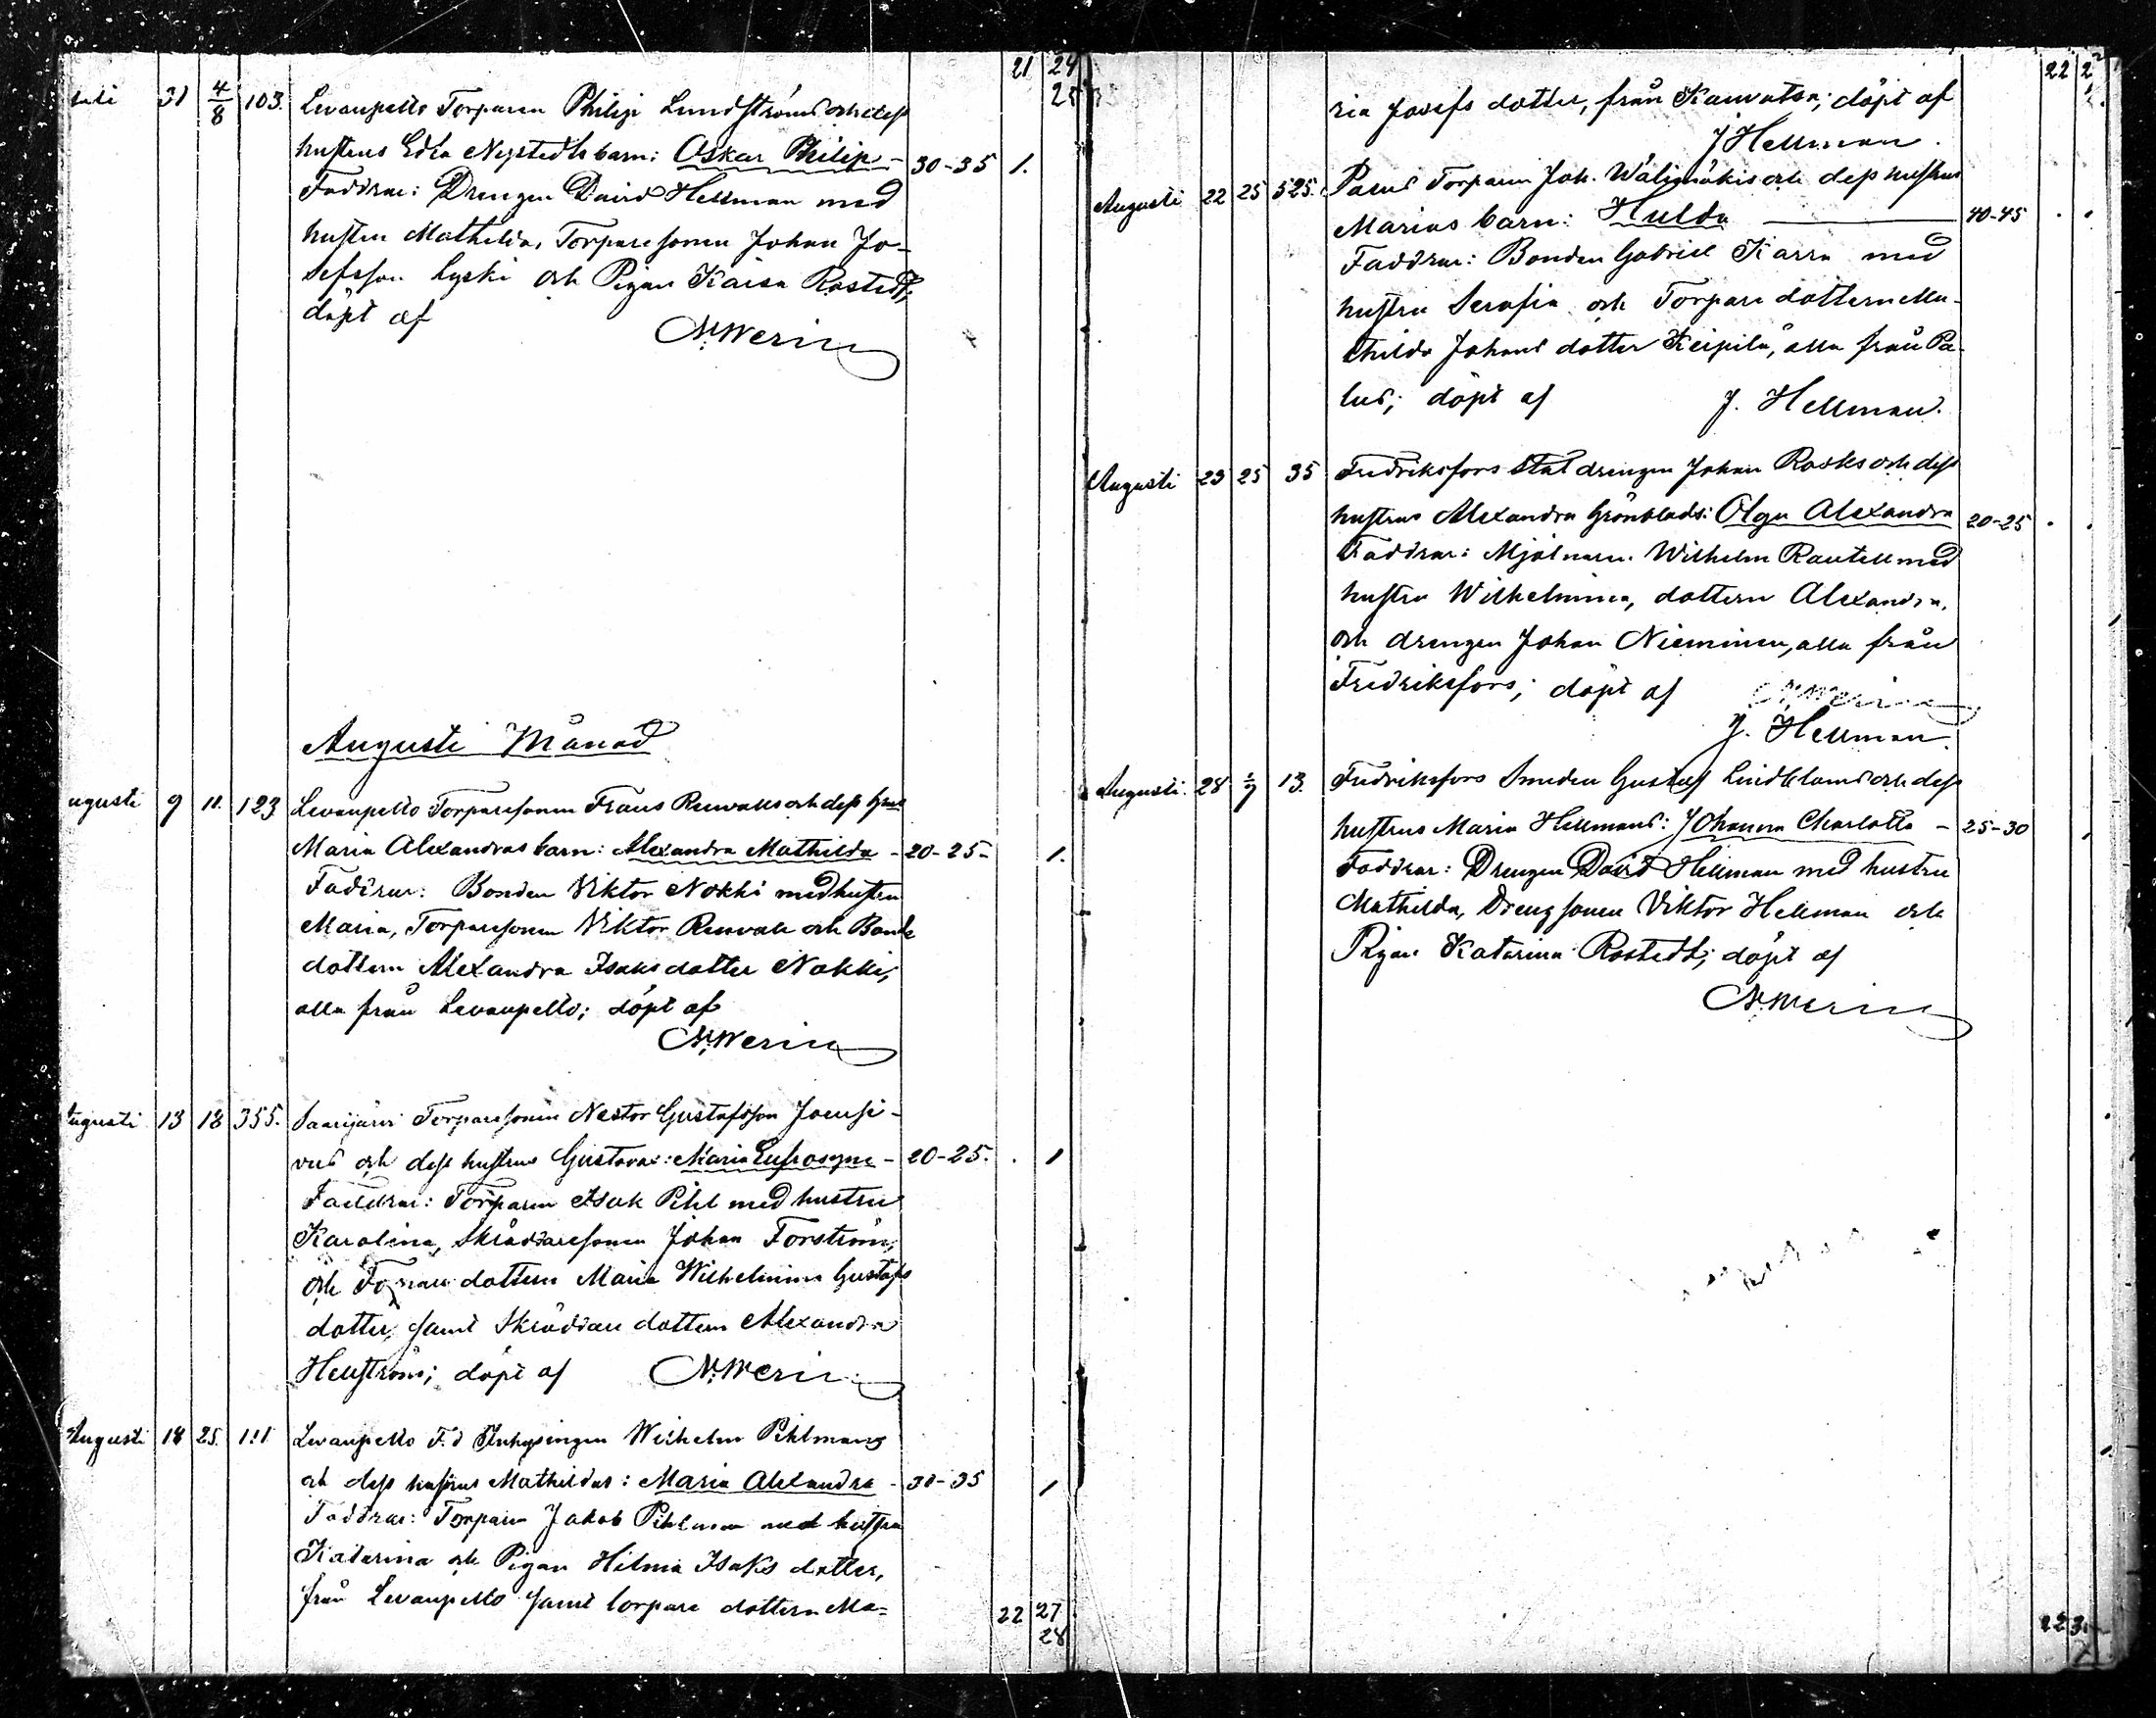 21 24
25
31 4/8 103. Levanpelto Torparen Philip Lundströms och dess
hustrus Edla Nystedts barn: Oskar Philip - 30-35 1.
Faddrar: Drengen David Hellman med
hustru Mathilda, Torparesonen Johan Jo-
sefsson Lyski och Pigan Kaisa Rostedt,
döpt af
N. Werin
Augusti Månad
ugusti 9 11. 123 Levanpelto Torparesonen Frans Renvalls och dess hust
Maria Alexandras barn: Alexandra Mathilda - 20-25- 1.
Faddrar: Bonden Viktor Nokki med hustru
Maria, Torparesonen Viktor Renvall och Bonde
dottern Alexandra Isaks dotter Nokki,
alla från Levanpelto; döpt af
N. Werin
ugusti 13 18 355. Saarijärvi Torparesonen Nestor Gustafsson
och dess hustrus Gustavas: Maria Eufrosyne - 20-25. 1
Faddrar: Torparen Isak Pihl med hustru
Karolina, Skräddaresonen Johan Forström,
och Torpare dottern Maria Wilhelmina Gustafs
dotter, samt Skräddare dottern Alexandra
Hellström; döpt af N. Werin
Augusti 18 25. 111 Levanpelto F.d Inhysingen Wilhelm Pihlmans
och dess hustrus Mathildas: Maria Alexandra - 30-35 1
Faddrar: Torparen Jakob Pihlman med hustru
Katarina och Pigan Hilma Isaks dotter,
från Levanpelto samt torpare dottern Ma-
22 27
28
22 2
ria Josefs dotter, från Kauvatsa; döpt af
J Hellman.
Augusti 22 25 525. Palus Torparen Joh. Wälimäkis och dess hustrus
Marias barn: Hulda 40-45
Faddrar: Bonden Gabriel Karra med
hustru Serafia och Torpare dottern Ma-
thilda Johans dotter Keipilä, alla från Pa-
lus; döpt af J. Hellman.
Augusti 23 25 35 Fredriksfors Stal drengen Johan Rosks och dess
hustrus Alexandra Grönblads: Olga Alexandra 20-25
Faddrar: Mjölnaren Wilhelm Rautell med
hustru Wilhelmina, dottern Alexandra,
och drengen Johan Nieminen, alla från
Fredriksfors; döpt af N. Werin
J. Hellman.
Augusti. 28 1/9 13. Fredriksfors Smeden Gustaf Lindbloms och dess
hustrus Maria Hellmans: Johanna Charlotta - 25-30
Faddrar: Drengen David Hellman med hustru
Mathilda, Drengsonen Viktor Hellman och
Pigan Katarina Rostedt; döpt af
N. Werin
22 3